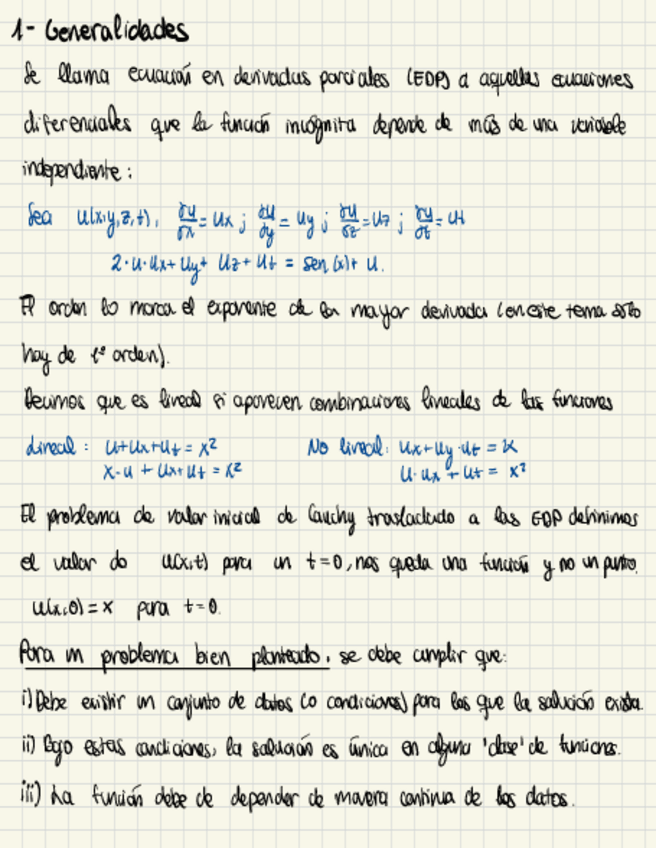 1- Generalidades
Se llama ecuación en derivadas parciales (EDP) a aquellas ecuaciones
diferenciales que la función incógnita depende de más de una variable
independiente:
Sea u(x,y,z,t), ∂u/∂x = ux ; ∂u/∂y = uy ; ∂u/∂z = uz ; ∂u/∂t = ut
2·u·ux + uy + uz + ut = sen(x) + u.
El orden lo marca el exponente de la mayor derivada (en este tema solo
hay de 1º orden).
Decimos que es lineal si aparecen combinaciones lineales de las funciones
Lineal: u+ux+ut = x² No lineal: ux+uy·ut = x
x·u + ux+ut = x² u·ux + ut = x²
El problema de valor inicial de Cauchy trasladado a las EDP definimos
el valor do u(x,t) para un t=0, nos queda una función y no un punto.
u(x,0) = x para t=0.
Para un problema bien planteado, se debe cumplir que:
i) Debe existir un conjunto de datos (o condiciones) para los que la solución exista.
ii) Bajo estas condiciones, la solución es única en alguna 'clase' de funciones.
iii) La función debe de depender de manera continua de los datos.